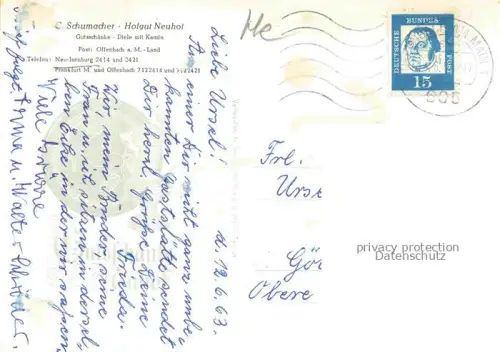 C. Schumacher · Hofgut Neuhof
Gutsschänke · Diele mit Kamin
Post: Offenbach a. M. - Land
Telefon: Neu-Isenburg 2414 und 2421
Frankfurt M. und Offenbach 7122414 und 7122421
Me
DEUTSCHE BUNDESPOST
15
d. 12.6.63.
Liebe Ursel!
Aus einer Dir nicht ganz unbe-
kannten Gaststätte sendet
Dir herzl. Grüße Deine
Frieda.
Wir, mein Bruder seine
Frau u. ich sitzen in derselben
Ecke in der wir saßen.
Viele Grüße
Anna u. Walter
Frl.
Urse
Gö
Obere
privacy protection
Datenschutz